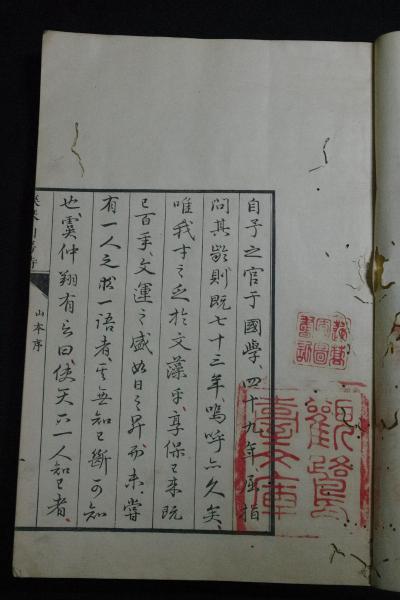 自予之官于國學、四十九年、屈指
問其齡則既七十三年嗚呼亦久矣、
唯我才之乏於文藻乎、享保已来既
已百年、文運之盛如日之昇、而未嘗
有一人之 一語者、其無知已斷可知
也、虞仲翔有言曰、使天下一人知已者、
山本序